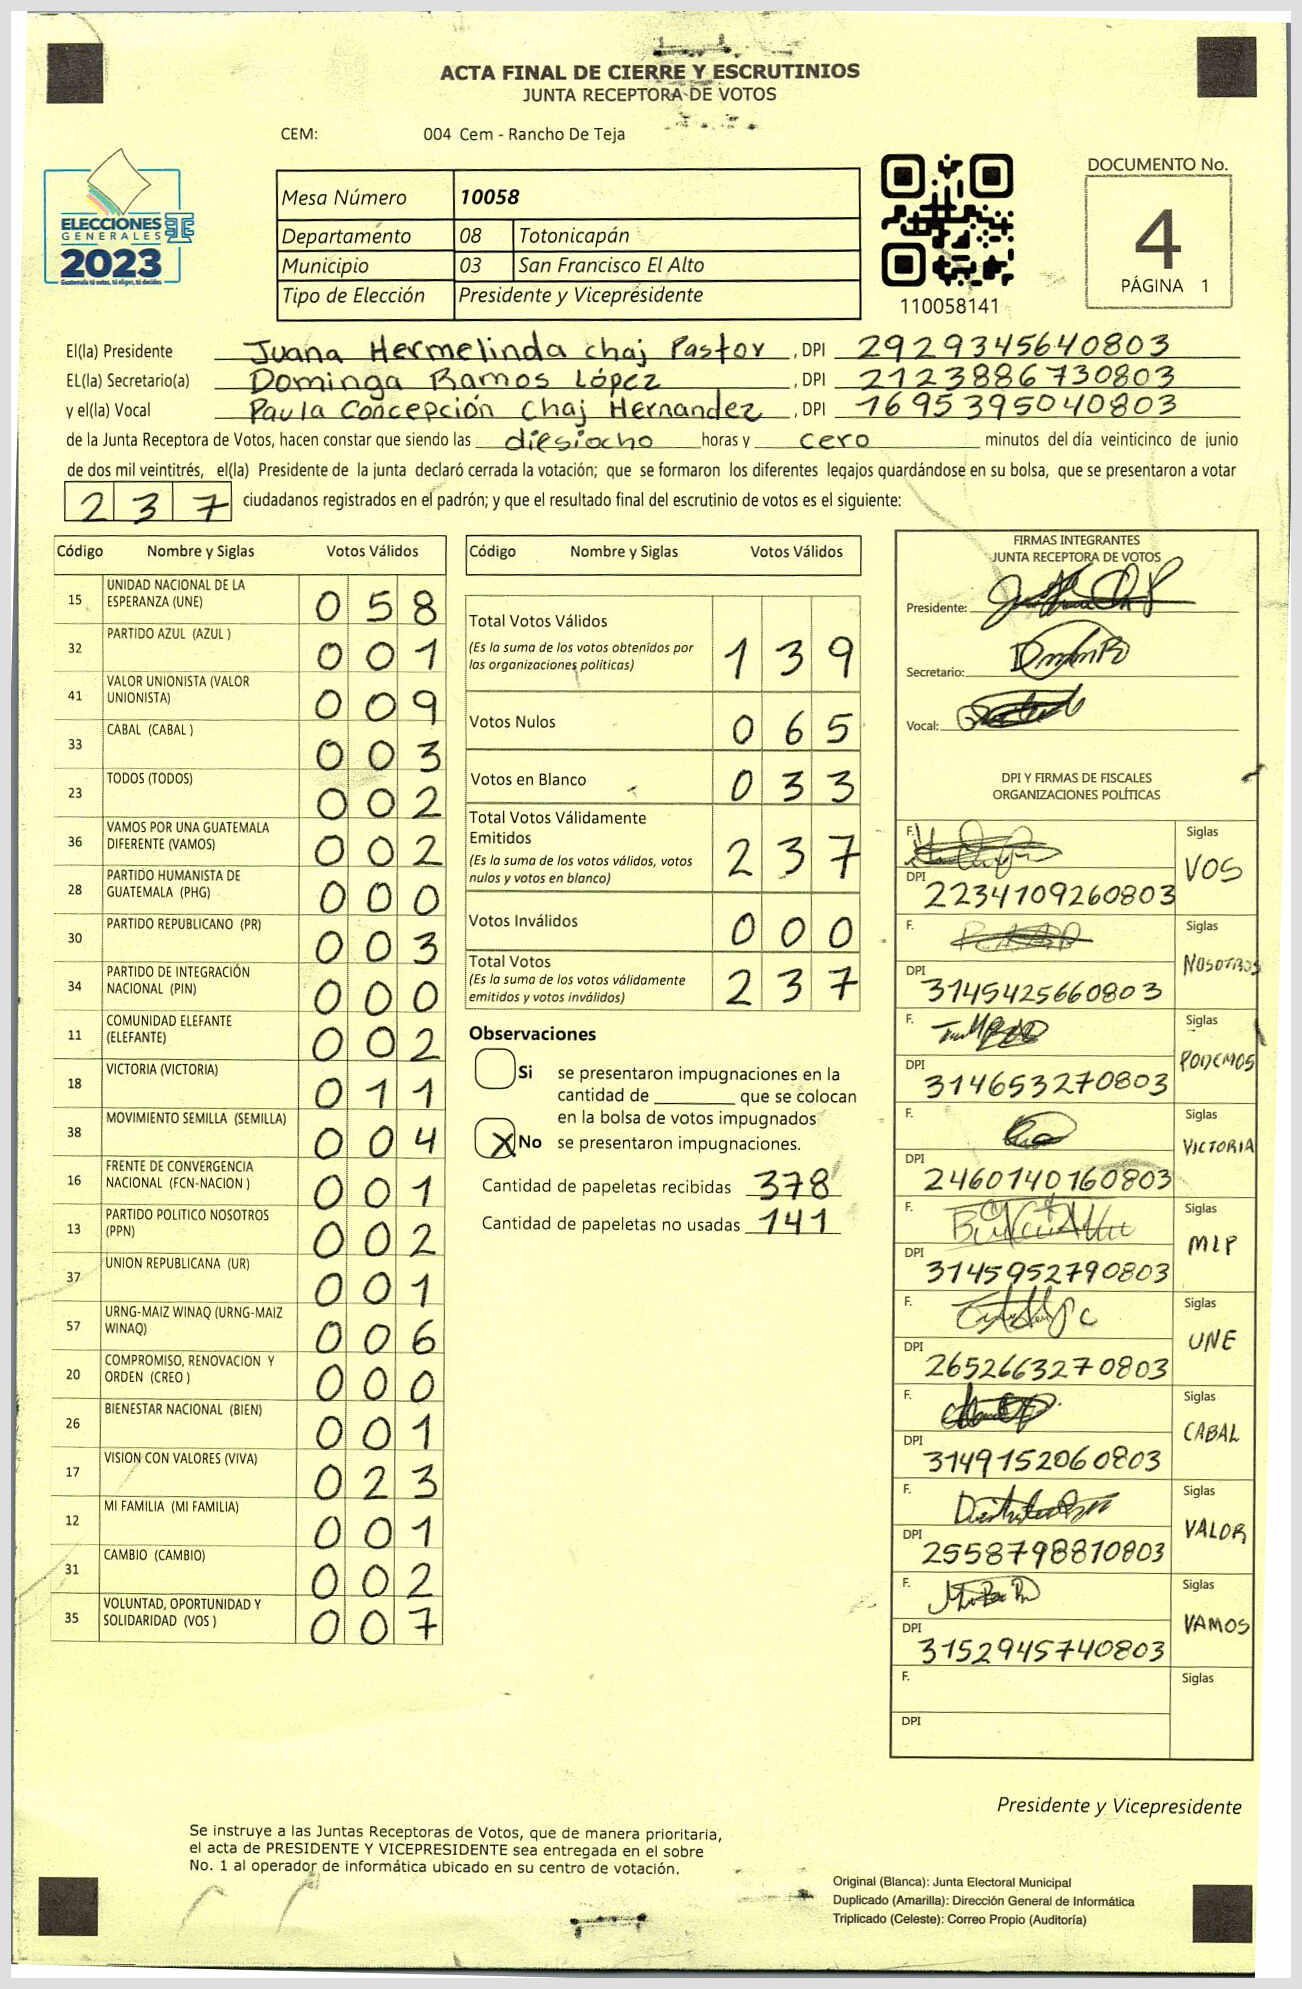 ACTA FINAL DE CIERRE Y ESCRUTINIOS
JUNTA RECEPTORA DE VOTOS
CEM: 004 Cem - Rancho De Teja
ELECCIONES
GENERALES
2023
Guatemala tú votas, tú eliges, tú decides
Mesa Número 10058
Departamento 08 Totonicapán
Municipio 03 San Francisco El Alto
Tipo de Elección Presidente y Vicepresidente
110058141
DOCUMENTO No.
4
PÁGINA 1
El(la) Presidente Juana Hermelinda chaj Pastor , DPI 2929345640803
EL(la) Secretario(a) Dominga Ramos López , DPI 2123886730803
y el(la) Vocal Paula Concepción Chaj Hernandez , DPI 1695395040803
de la Junta Receptora de Votos, hacen constar que siendo las diesiocho horas y cero minutos del día veinticinco de junio
de dos mil veintitrés, el(la) Presidente de la junta declaró cerrada la votación; que se formaron los diferentes legajos quardándose en su bolsa, que se presentaron a votar
237 ciudadanos registrados en el padrón; y que el resultado final del escrutinio de votos es el siguiente:
Código Nombre y Siglas Votos Válidos
15 UNIDAD NACIONAL DE LA ESPERANZA (UNE) 058
32 PARTIDO AZUL (AZUL ) 001
41 VALOR UNIONISTA (VALOR UNIONISTA) 009
33 CABAL (CABAL ) 003
23 TODOS (TODOS) 002
36 VAMOS POR UNA GUATEMALA DIFERENTE (VAMOS) 002
28 PARTIDO HUMANISTA DE GUATEMALA (PHG) 000
30 PARTIDO REPUBLICANO (PR) 003
34 PARTIDO DE INTEGRACIÓN NACIONAL (PIN) 000
11 COMUNIDAD ELEFANTE (ELEFANTE) 002
18 VICTORIA (VICTORIA) 011
38 MOVIMIENTO SEMILLA (SEMILLA) 004
16 FRENTE DE CONVERGENCIA NACIONAL (FCN-NACION ) 001
13 PARTIDO POLITICO NOSOTROS (PPN) 002
37 UNION REPUBLICANA (UR) 001
57 URNG-MAIZ WINAQ (URNG-MAIZ WINAQ) 006
20 COMPROMISO, RENOVACION Y ORDEN (CREO ) 000
26 BIENESTAR NACIONAL (BIEN) 001
17 VISION CON VALORES (VIVA) 023
12 MI FAMILIA (MI FAMILIA) 001
31 CAMBIO (CAMBIO) 002
35 VOLUNTAD, OPORTUNIDAD Y SOLIDARIDAD (VOS ) 007
Código Nombre y Siglas Votos Válidos
Total Votos Válidos
(Es la suma de los votos obtenidos por
las organizaciones políticas) 139
Votos Nulos 065
Votos en Blanco 033
Total Votos Válidamente
Emitidos
(Es la suma de los votos válidos, votos
nulos y votos en blanco) 237
Votos Inválidos 000
Total Votos
(Es la suma de los votos válidamente
emitidos y votos inválidos) 237
Observaciones
Si se presentaron impugnaciones en la
cantidad de ________ que se colocan
en la bolsa de votos impugnados
X No se presentaron impugnaciones.
Cantidad de papeletas recibidas 378
Cantidad de papeletas no usadas 141
FIRMAS INTEGRANTES
JUNTA RECEPTORA DE VOTOS
Presidente:
Secretario:
Vocal:
DPI Y FIRMAS DE FISCALES
ORGANIZACIONES POLÍTICAS
F. Siglas VOS
DPI 2234109260803
F. Siglas NOSOTROS
DPI 3145425660803
F. Siglas PODEMOS
DPI 314653270803
F. Siglas VICTORIA
DPI 2460140160803
F. Siglas MLP
DPI 3145952790803
F. Siglas UNE
DPI 2652663270803
F. Siglas CABAL
DPI 3149152060803
F. Siglas VALOR
DPI 2558798810803
F. Siglas VAMOS
DPI 3152945740803
F. Siglas
DPI
Presidente y Vicepresidente
Se instruye a las Juntas Receptoras de Votos, que de manera prioritaria,
el acta de PRESIDENTE Y VICEPRESIDENTE sea entregada en el sobre
No. 1 al operador de informática ubicado en su centro de votación.
Original (Blanca): Junta Electoral Municipal
Duplicado (Amarilla): Dirección General de Informática
Triplicado (Celeste): Correo Propio (Auditoría)